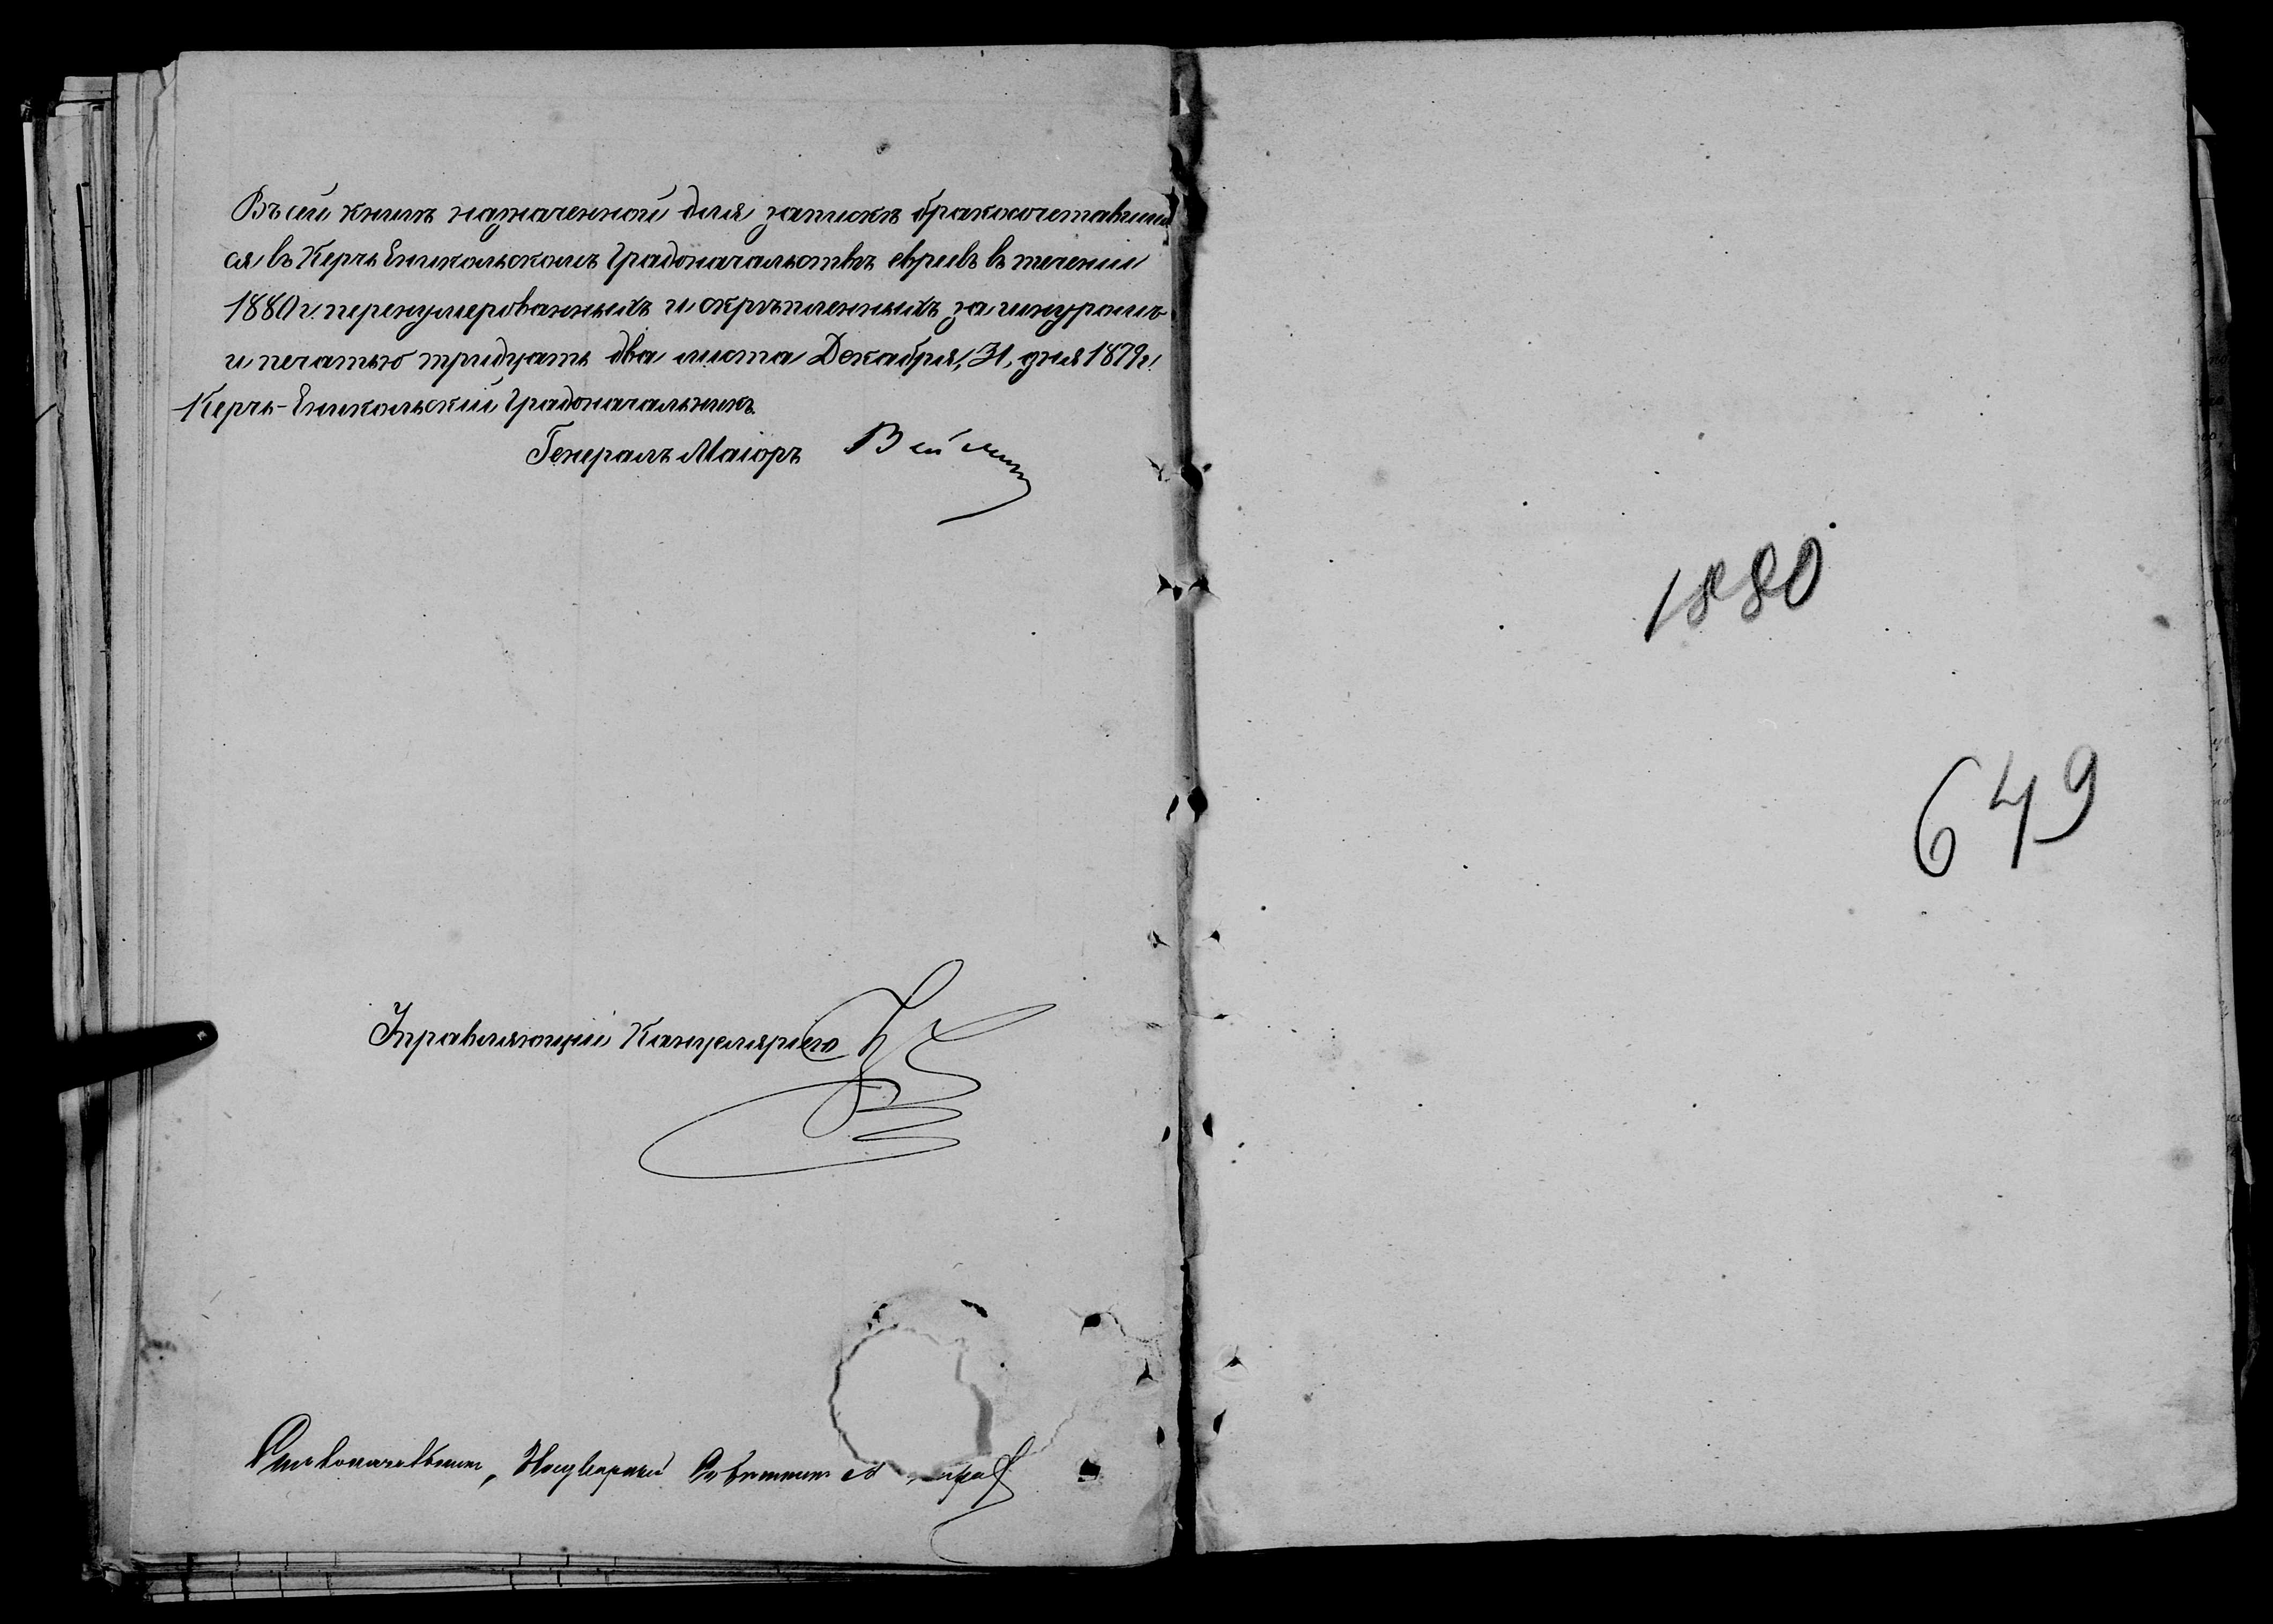 Въ сей книгѣ назначенной для записки бракосочетавших
ся въ Керчь Еникольскомъ Градоначальствѣ евреевъ въ теченіи
1880 г. перенумерованныхъ и скрѣпленныхъ за шнуромъ
и печатью тридцать два листа Декабря 31 дня 1879 г.
Керчь-Еникольскій Градоначальникъ
Генералъ Маіоръ Вейс
Управляющій Канцеляріею
Надворный Совѣтникъ
1880
649